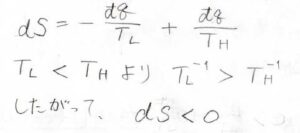 dS = - dq/T_L + dq/T_H
T_L < T_H より T_L^-1 > T_H^-1
したがって、 dS < 0